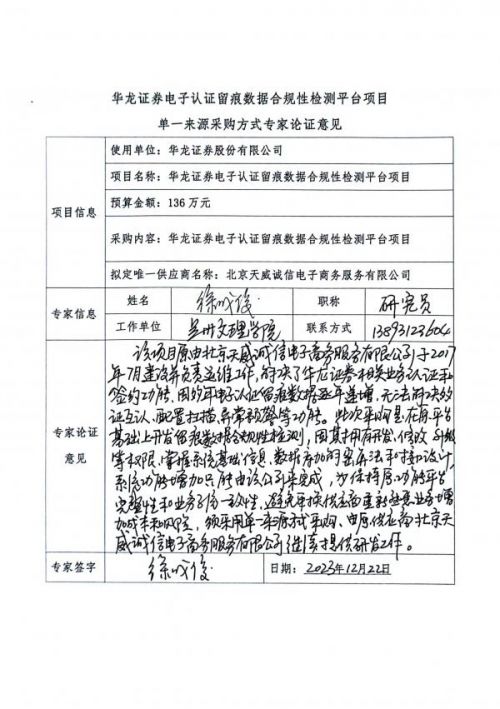 华龙证券电子认证留痕数据合规性检测平台项目
单一来源采购方式专家论证意见
项目信息
使用单位：华龙证券股份有限公司
项目名称：华龙证券电子认证留痕数据合规性检测平台项目
预算金额：136 万元
采购内容：华龙证券电子认证留痕数据合规性检测平台项目
拟定唯一供应商名称：北京天威诚信电子商务服务有限公司
专家信息
姓名
职称 研究员
工作单位 兰州文理学院
联系方式 13893123604
专家论证意见
该项目原由北京天威诚信电子商务服务有限公司于2017
年7月建设并负责运维工作，解决了华龙证券相关业务认证和
签约功能，因的年电子认证留痕数据逐年递增，无法解决的
证互认、配置扫描、异常预警等功能。此次采购是在原平台
基础上开发留痕数据合规性检测，因其拥有研发、修改、升级
等权限，掌握系统基础信息、数据存加的密算法和对接设计，
系统功能增加只能由该公司来完成，为保持原功能平台
完整性和业务系统一致性，避免更换供应商重新
加成本和风险，须采用单一来源方式采购，由原供应商北京天
威诚信电子商务服务有限公司继续提供研发工作。
专家签字
日期：2023年12月22日